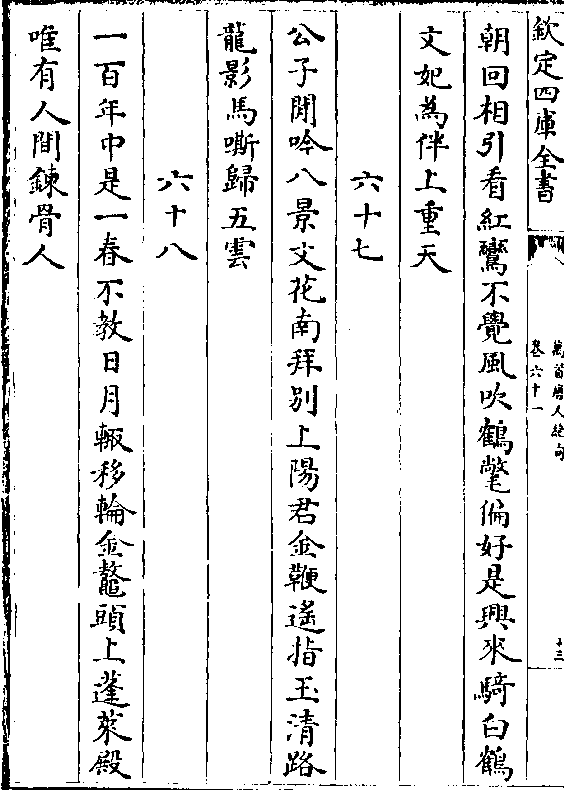 欽定四庫全書
萬首唐人絶句
卷六十一
十三
朝回相引看紅鸞不覺風吹鶴氅偏好是興來騎白鶴
文妃為伴上重天
六十七
公子閒吟八景文花南拜別上陽君金鞭遙指玉清路
龍影馬嘶歸五雲
六十八
一百年中是一春不教日月輙移輪金鼇頭上蓬萊殿
唯有人間鍊骨人